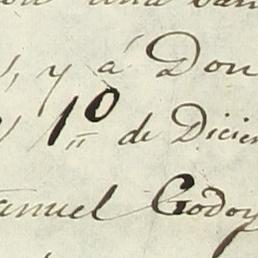 y á Don
1º de Dicie
anuel Godoy